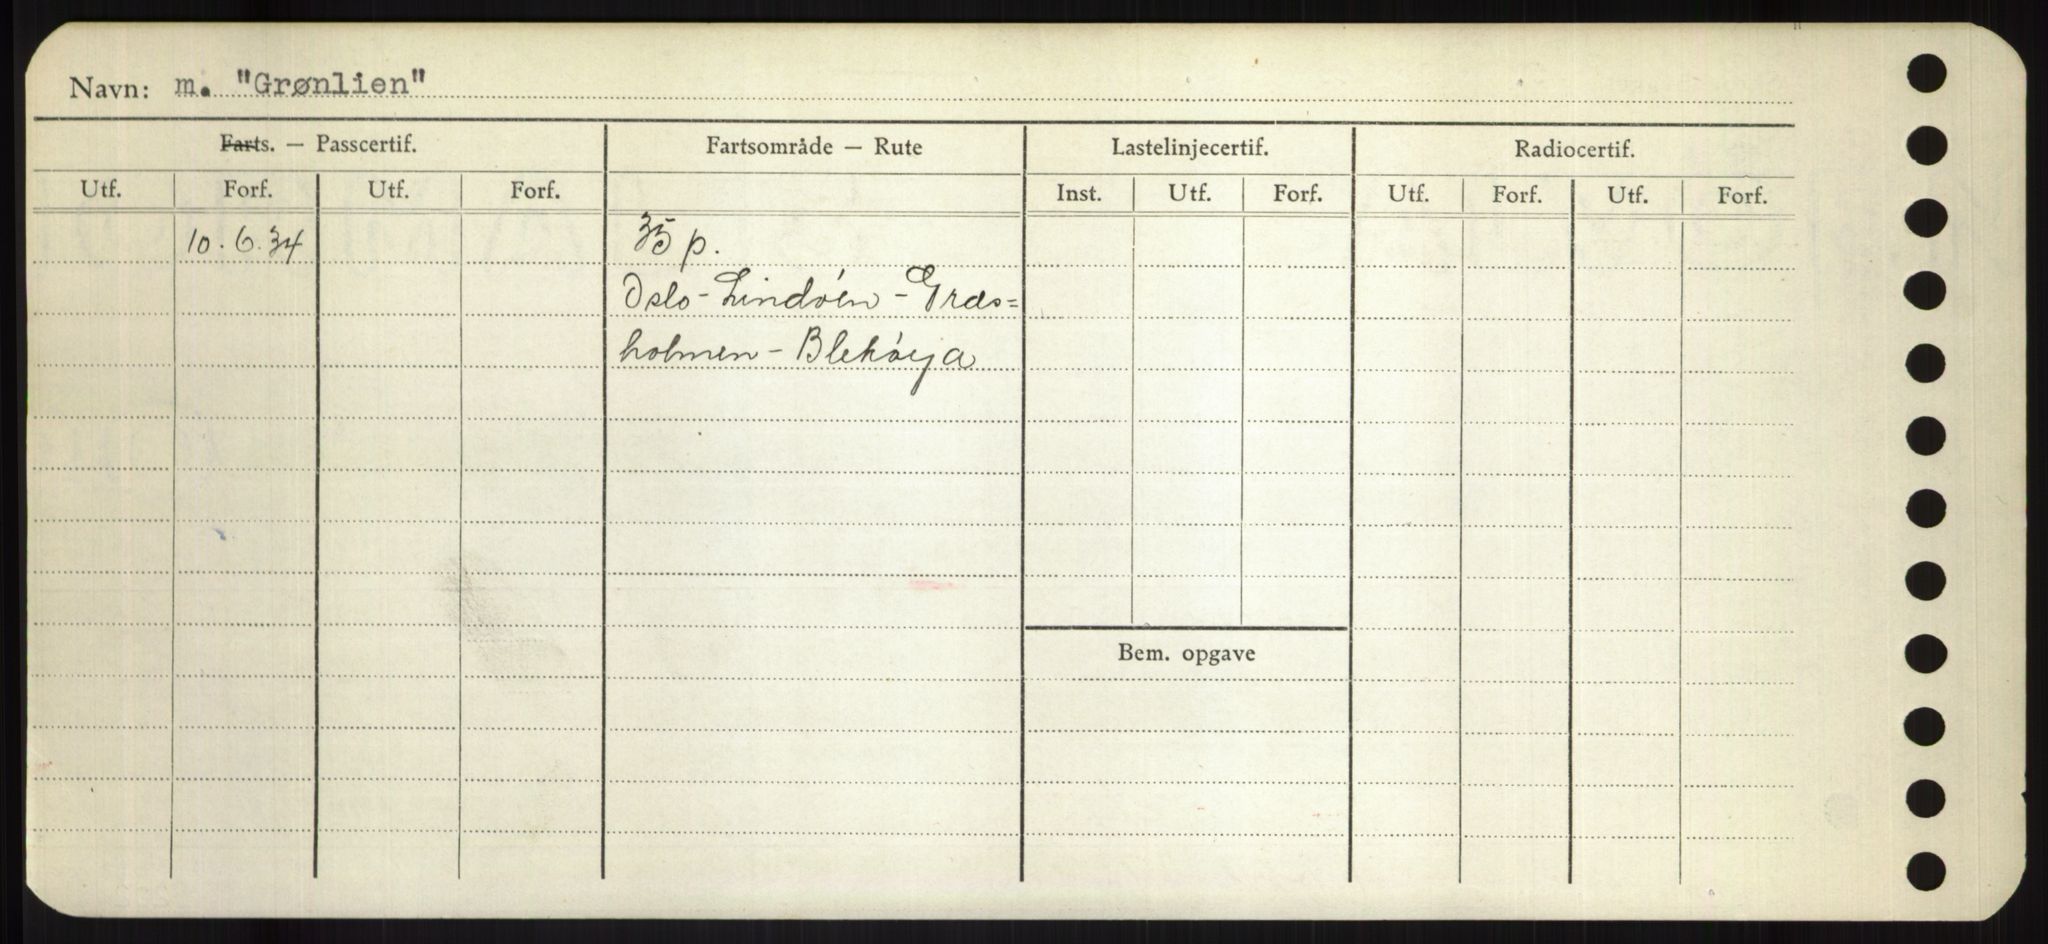 Navn: m. "Grønlien"
Farts. — Passcertif. Fartsområde — Rute Lastelinjecertif. Radiocertif.
Utf. Forf. Utf. Forf. Inst. Utf. Forf. Utf. Forf. Utf. Forf.
10.6.34 35 p.
Oslo - Lindøen - Græs=
holmen - Blekøya
Bem. opgave